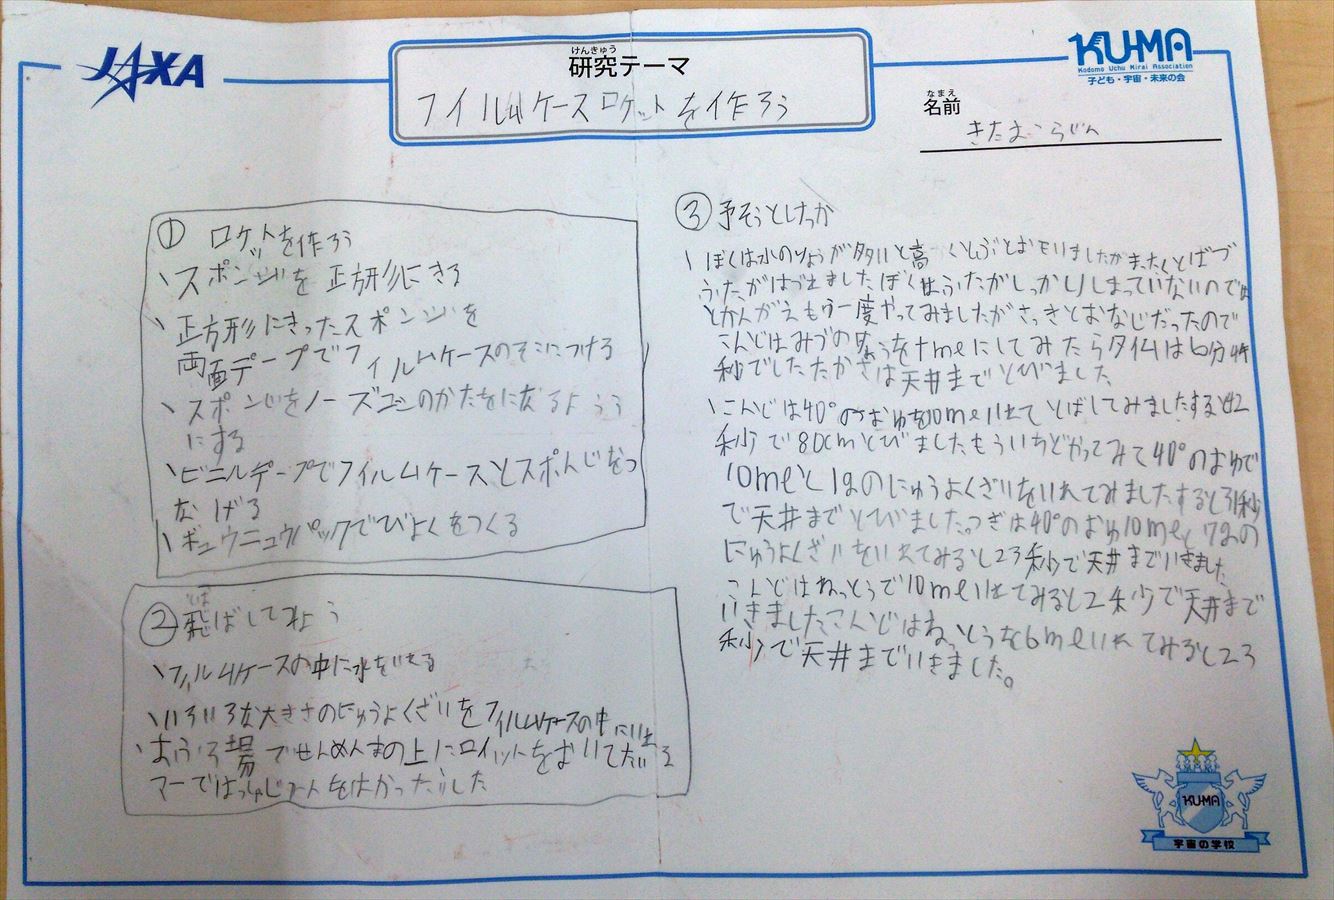 JAXA
けんきゅう
研究テーマ
フイルムケースロケットを作ろう
KU-MA
Kodomo Uchu Mirai Association
子ども・宇宙・未来の会
なまえ
名前
① ロケットを作ろう
、スポンジを正方形にきる
、正方形にきったスポンジを
両面テープでフィルムケースのそこにつける
、スポンジをノーズコーンのかたちになるよう
にする
、ビニルテープでフィルムケースとスポんじをつ
なげる
、ギュウニュウパックでびよくをつくる
②飛ばしてみよう
、フィルムケースの中に水をいれる
、いろいろな大きさのにゅうよくざいをフィルムケースの中にいれ
おふろ場でせんめんきの上にロケットをおいてたい
マーではっしゃじ
③ 予そうとけっか
、ぼくは水のりょうが多いと高くとぶとおもいましたがまったくとばづ
ふたがはづれましたぼくはふたがしっかりしまっていないのでは
とかんがえもう一度やってみましたがさっきとおなじだったので
こんどはみづのりょうを
秒でしたたかさは天井までとびました
、こんどは40°のおゆを10mlいれてとばしてみましたすると42
秒で80cmとびましたもういちどやってみて40°のおゆで
10mlと1gのにゅうよくざいをいれてみましたすると31秒
で天井までとびました。つぎは40°のおゆ10mlと7gの
にゅうよくざいをいれてみると23秒で天井までいきました
こんどはねっとうで10mlいれてみると2秒で天井まで
いきましたこんどはねっとうを6mlいれてみると23
秒で天井までいきました。
KU-MA
宇宙の学校